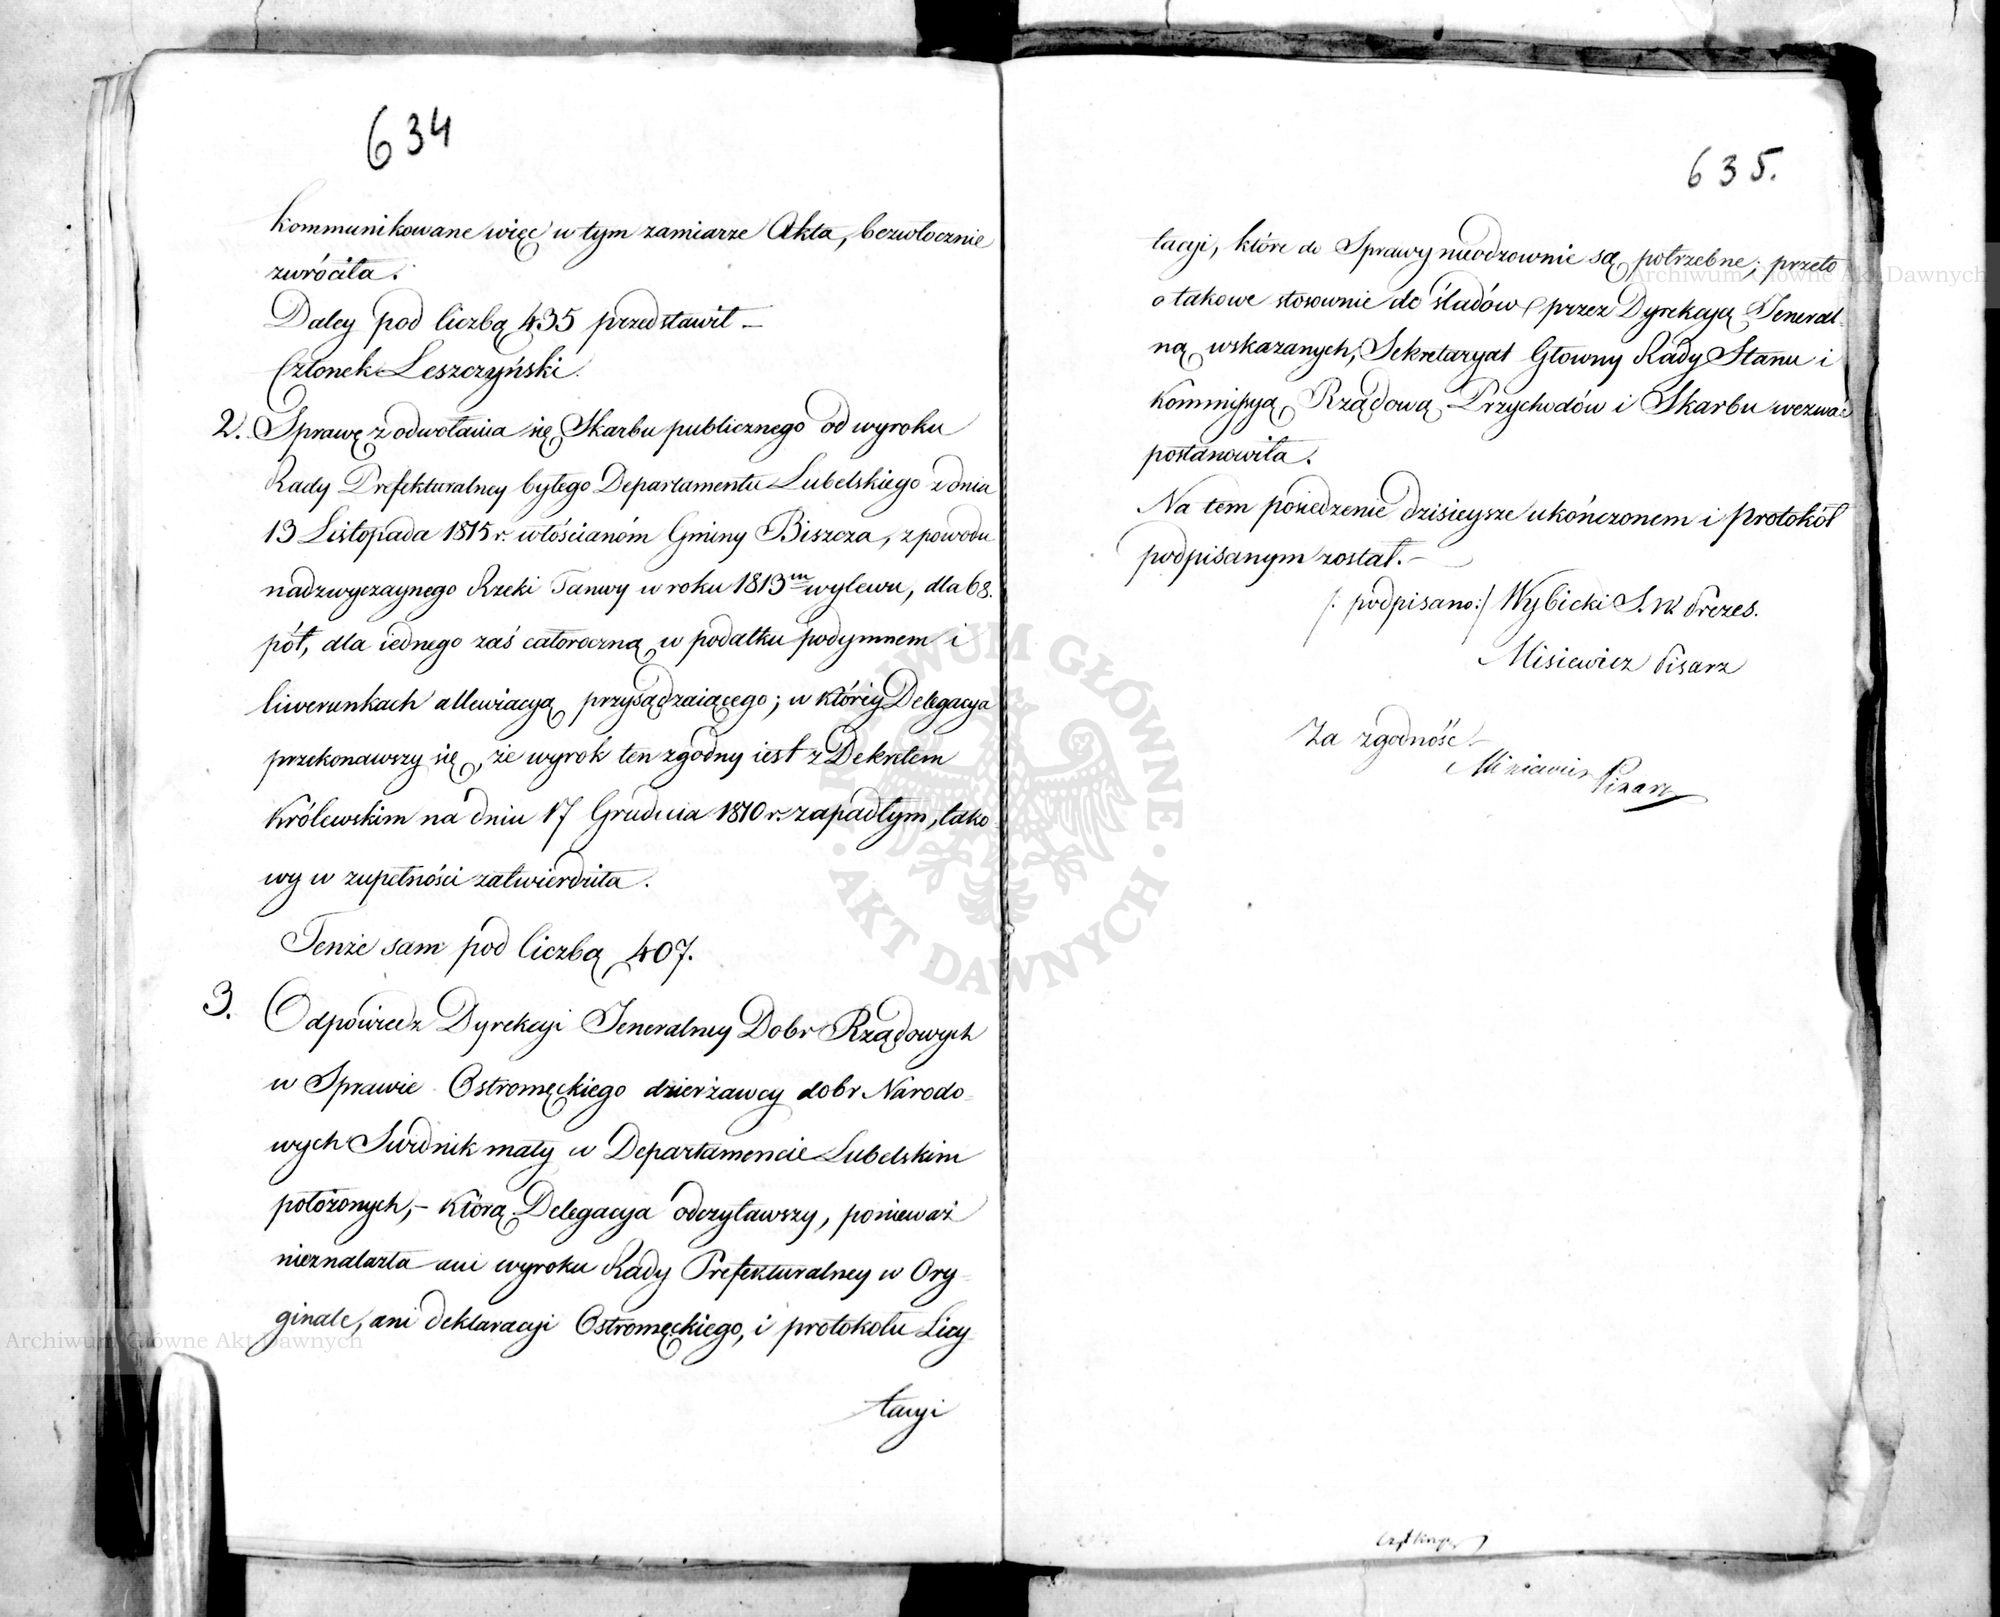 634
kommunikowane więc w tym zamiarze Akta, bezwłocznie
zwróciła.
Daley pod liczbą 435 przedstawił —
Członek Leszczyński.
2. Sprawę z odwołania się Skarbu publicznego od wyroku
Rady Prefekturalney byłego Departamentu Lubelskiego z dnia
13 Listopada 1815 r. włościanóm Gminy Biszcza, z powodu
nadzwyczaynego Rzeki Tanwy w roku 1813m wylewu, dla 68.
pół, dla iednego zaś całoroczną w podatku podymnem i
liwerunkach allewiacyą przysądzaiącego; w którey Delegacya
przekonawszy się, że wyrok ten zgodny iest z Dekretem
Królewskim na dniu 17 Grudnia 1810 r. zapadłym, tako
wy w zupełności zatwierdziła.
Tenże sam pod liczbą 407.
3. Odpowiedz Dyrekcyi Jeneralney Dobr Rządowych
w Sprawie Ostromęckiego dzierżawcy dobr Narodo=
wych Swidnik mały w Departamencie Lubelskim
położonych, – którą Delegacya odczytawszy, ponieważ
nieznalazła ani wyroku Rady Prefekturalney w Ory=
ginale, ani deklaracyi Ostromęckiego, i protokołu Licy-
tacyi
635.
tacyi, które do Sprawy nieodzownie są potrzebne; przeto
o takowe stosownie do śladów przez Dyrekcyą Jeneral=
ną wskazanych, Sekretaryat Głowny Rady Stanu i
Kommissyą Rządową Przychodów i Skarbu wezwać
postanowiła.
Na tem posiedzenie dzisieysze ukończonem i protokół
podpisanym został. —
/: podpisano :/ Wybicki S. W. Prezes.
Misiewicz Pisarz
Za zgodność
Misiewicz Pisarz
Archiwum Główne Akt Dawnych
Archiwum Główne Akt Dawnych
ARCHIWUM GŁÓWNE · AKT DAWNYCH ·